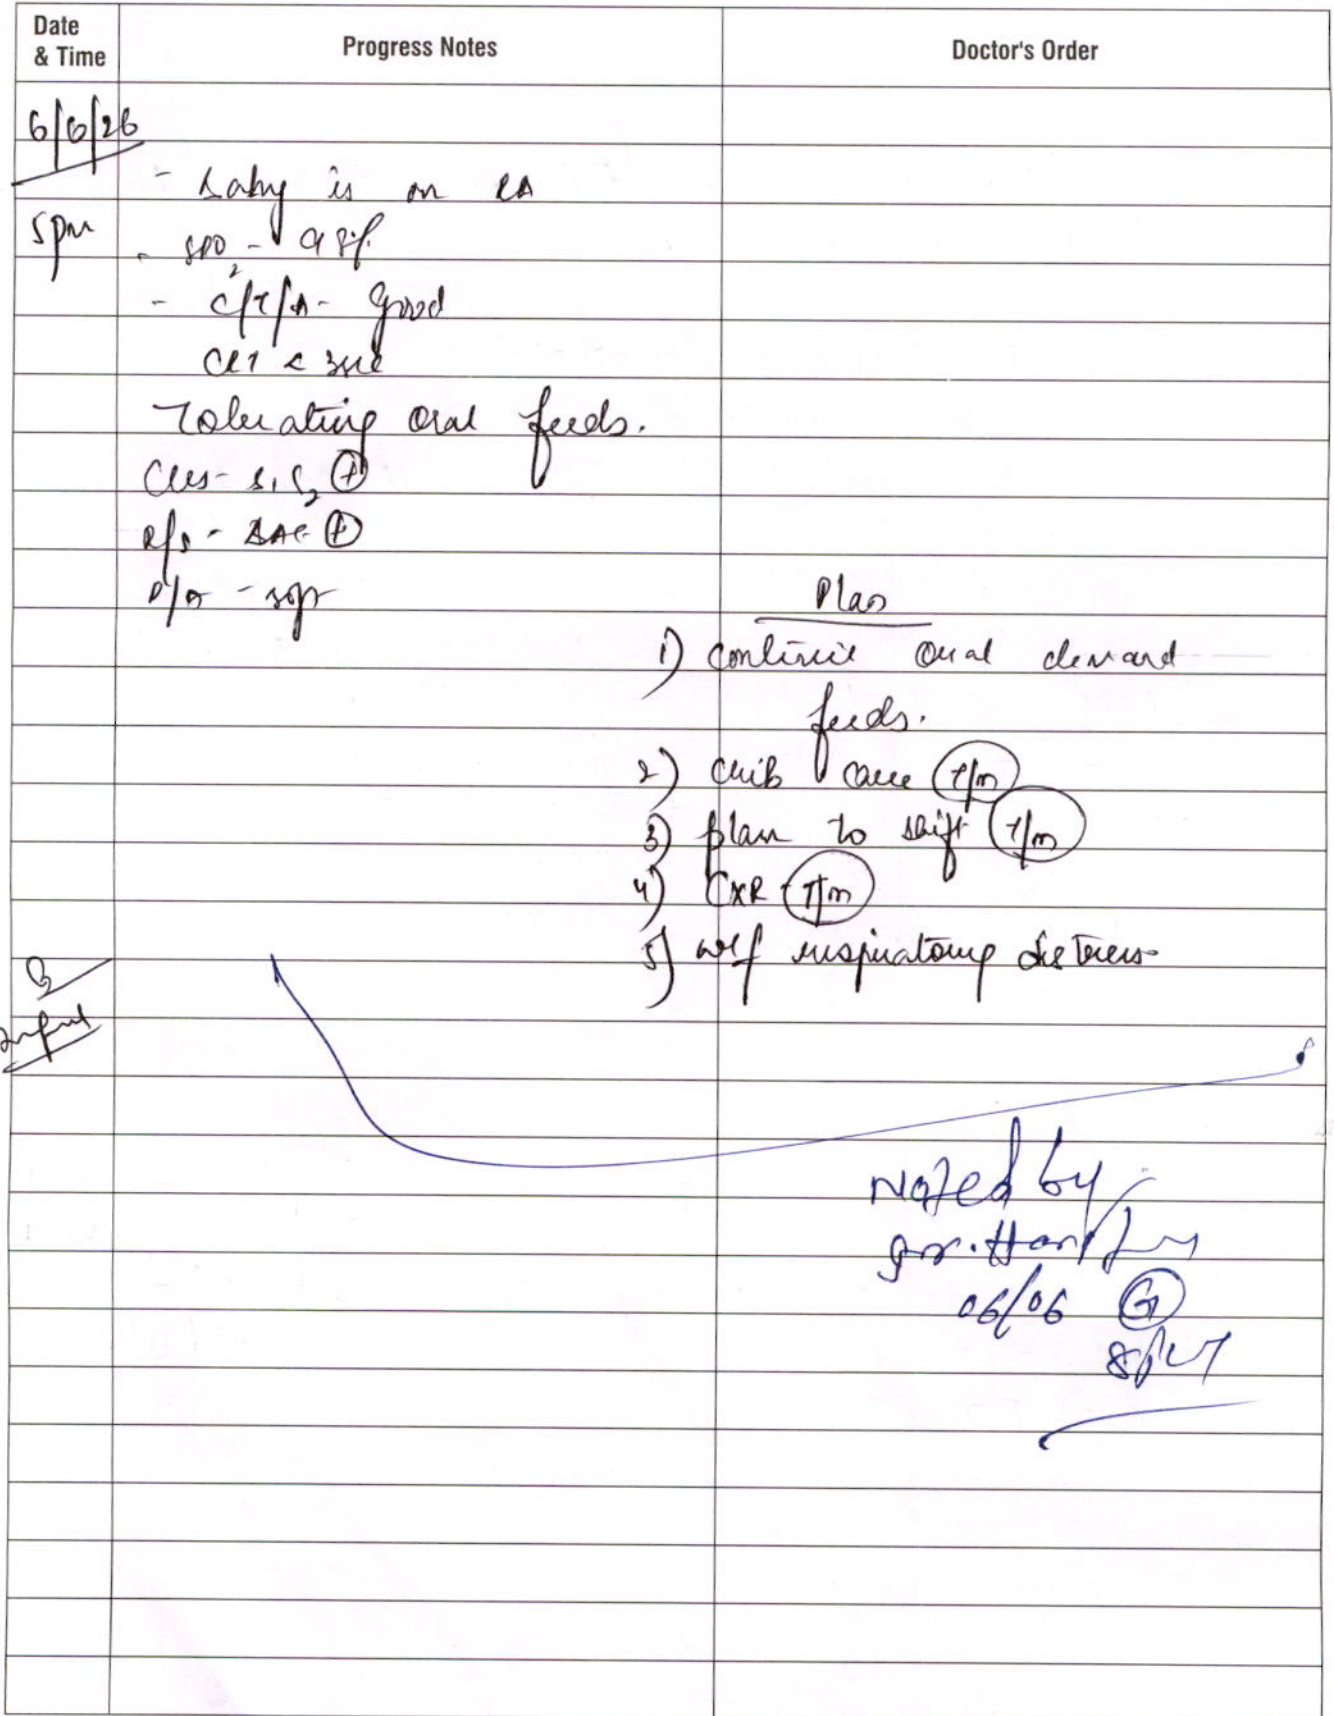 Date & Time
Progress Notes
Doctor's Order
6/6/26
- Baby is on RA
5pm
- SPO2 - 98%
- C/T/A - Good
CRT < 3sec
Tolerating oral feeds.
CVS - S1 S2 (+)
R/S - BAE (+)
P/A - soft
Plan
1) Continue oral demand
feeds.
2) Crib care (T/m)
3) plan to shift (T/m)
4) CXR (T/m)
5) w/f respiratory distress
Noted by
06/06 (G)
8pm